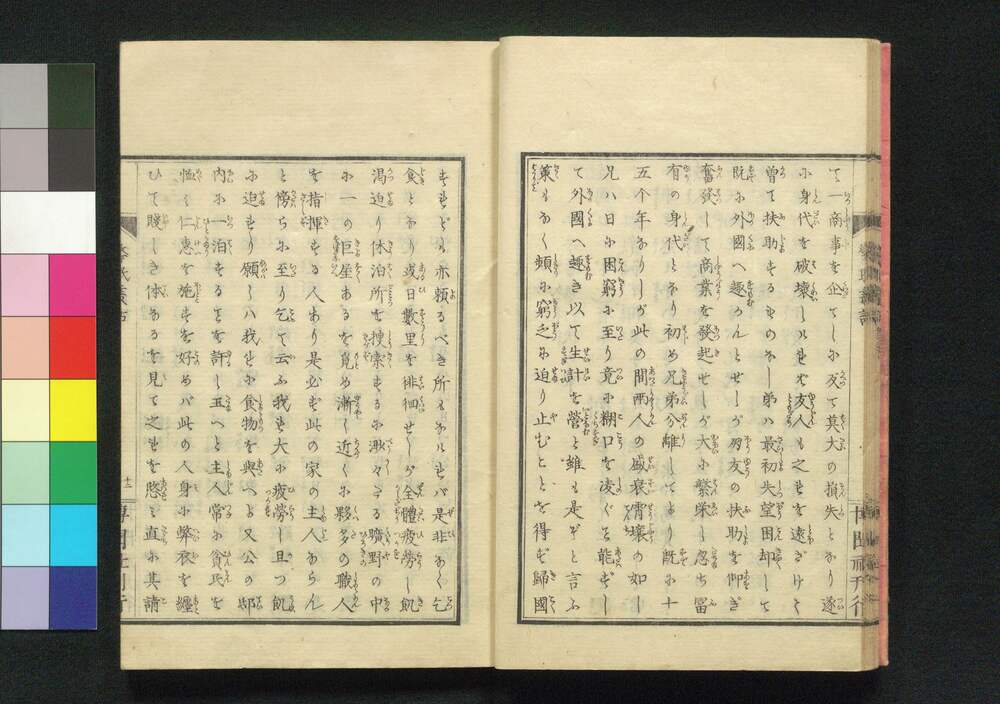 て一商事を企てしに反て莫大の損失となり遂
に身代を破壊しければ友人も之を遠ざけて
曽て扶助するものなし弟ハ最初失望困却して
既に外國へ趣かんとせしが朋友の扶助を仰ぎ
奮發して商業を發起せしが大に繁栄し忽ち富
有の身代となり初め兄弟分離してより既に十
五个年なりしが此の間兩人の盛衰霄壌の如し
兄ハ日に困窮に至り竟に糊口を凌ぐこと能ずし
て外國へ趣き以て生計を營と雖も是ぞと言ふ
業もなく頻に窮乏に迫り止むことを得ず歸國
すれども亦頼るべき所もなければ是非なく乞
食となり或日數里を徘徊せしが全體疲勞し飢
渇迫り休泊所を搜索するに渺々たる曠野の中
に一の巨屋あるを覓め漸く近くに夥多の職人
を指揮する人あり是必ず此の家の主人ならん
と傍ちに至り乞て云ふ我れ大に疲勞し且つ飢
に迫れり願くハ我れに食物を與へよ又公の邸
内に一泊することを許し玉へと主人常に貧民を
恤み仁惠を施すを好めバ此の人身に弊衣を纏
ひて賤しき体なるを見て之れを愍み直に其請
十二